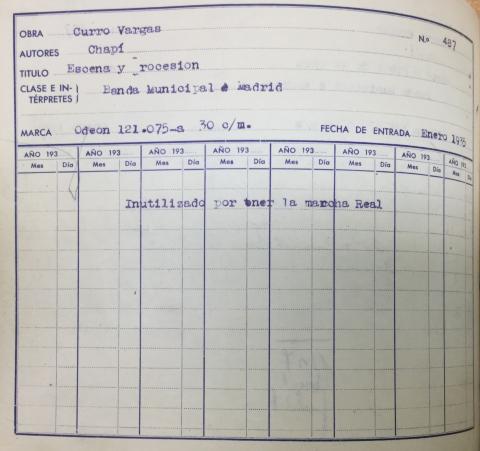 OBRA Curro Vargas N.º 487
AUTORES Chapí
TITULO Escena y rocesion
CLASE E IN- Banda Municipal e Madrid
TÉRPRETES
MARCA Odeon 121.075-a 30 c/m. FECHA DE ENTRADA Enero 1935
AÑO 193 AÑO 193 AÑO 193 AÑO 193 AÑO 193 AÑO 193 AÑO 193 AÑO 193
Mes Día Mes Día Mes Día Mes Día Mes Día Mes Día Mes Día Mes Día
Inutilizado por tner la marcha Real